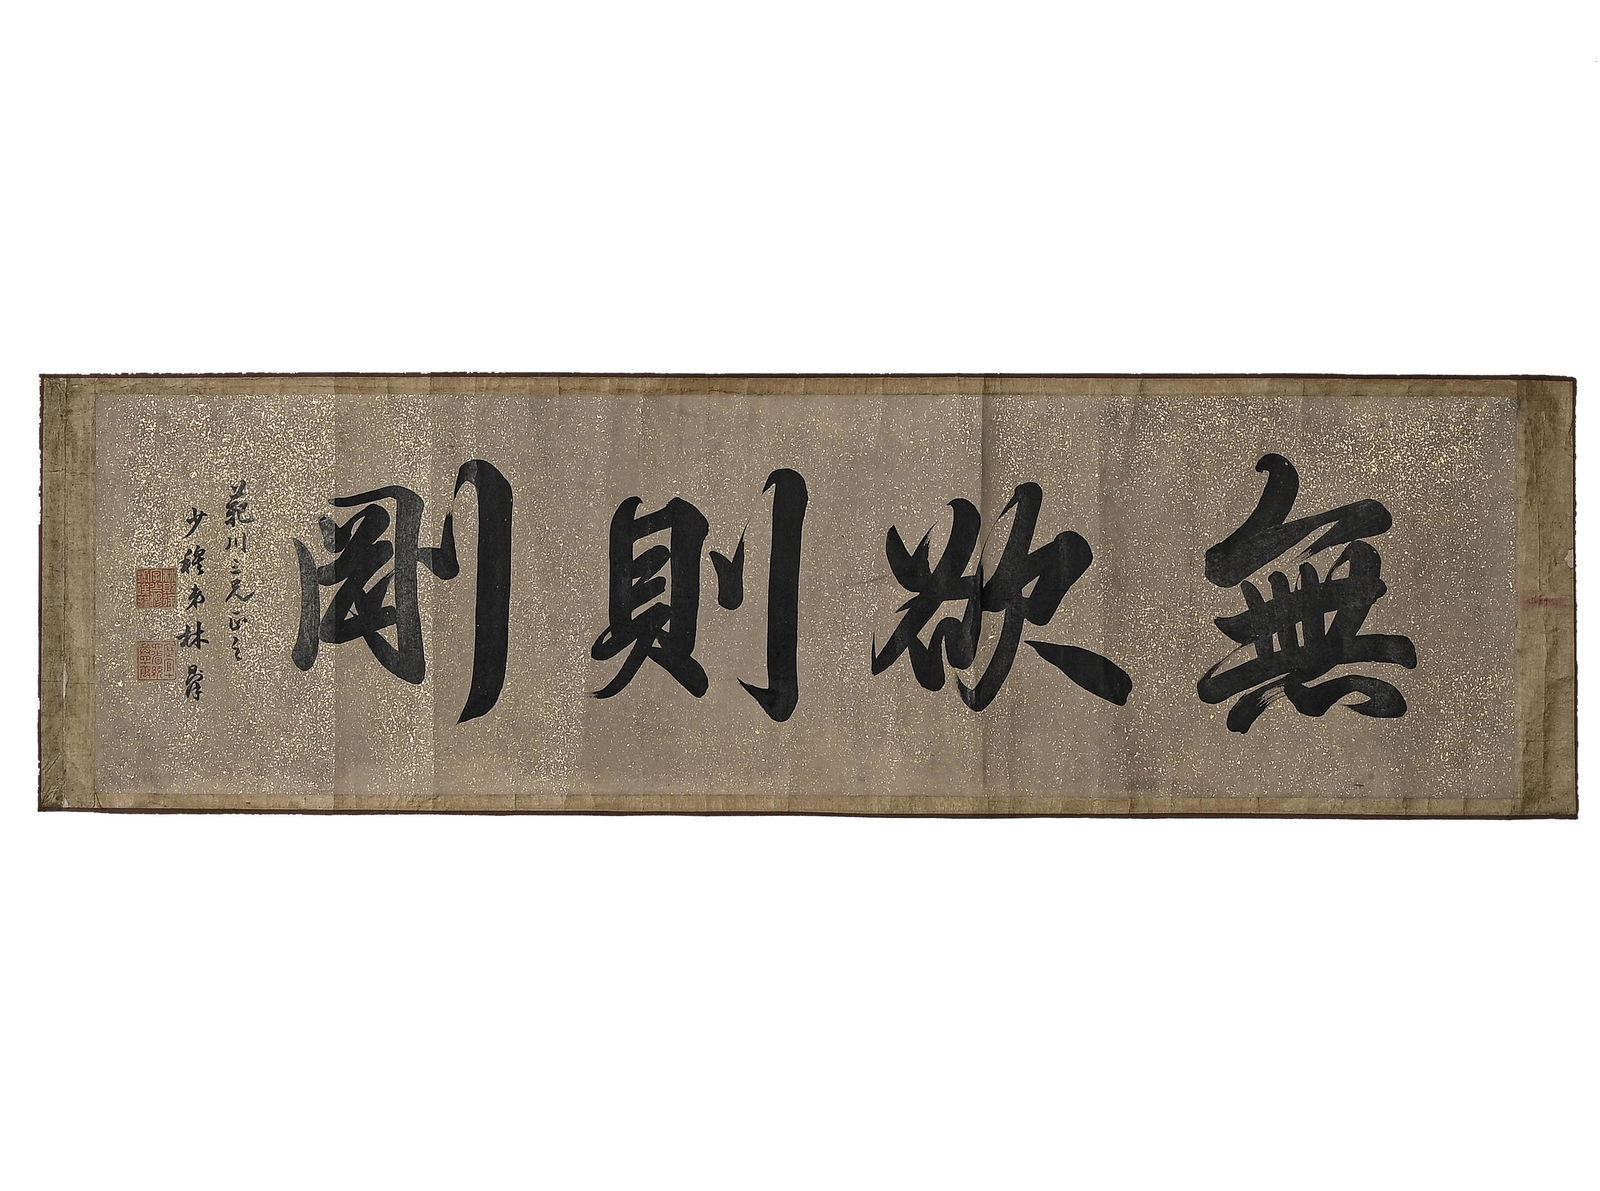 無欲則剛
範川三兄正之
少穆弟林